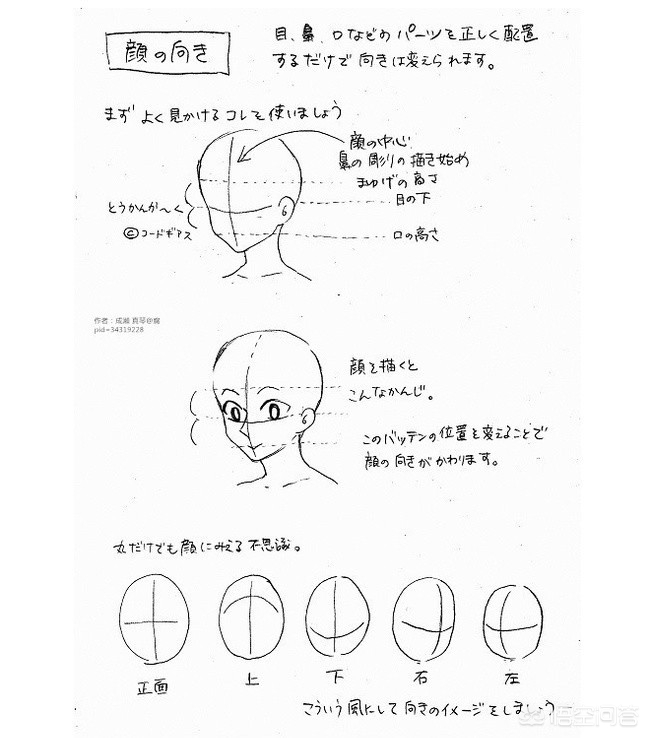 顔の向き
目、鼻、口などのパーツを正しく配置
するだけで向きは変えられます。
まずよく見かけるコレを使いましょう
顔の中心
鼻の彫りの描き始め
まゆげの高さ
目の下
とうかんかーく
©コードギアス
口の高さ
作者：成瀬 真琴@腐
pid=34319228
顔を描くと
こんなかんじ。
このバッテンの位置を変えることで
顔の向きがかわります。
丸だけでも顔にみえる不思議。
正面
上
下
右
左
こういう風にして向きのイメージをしましょう
悟空问答